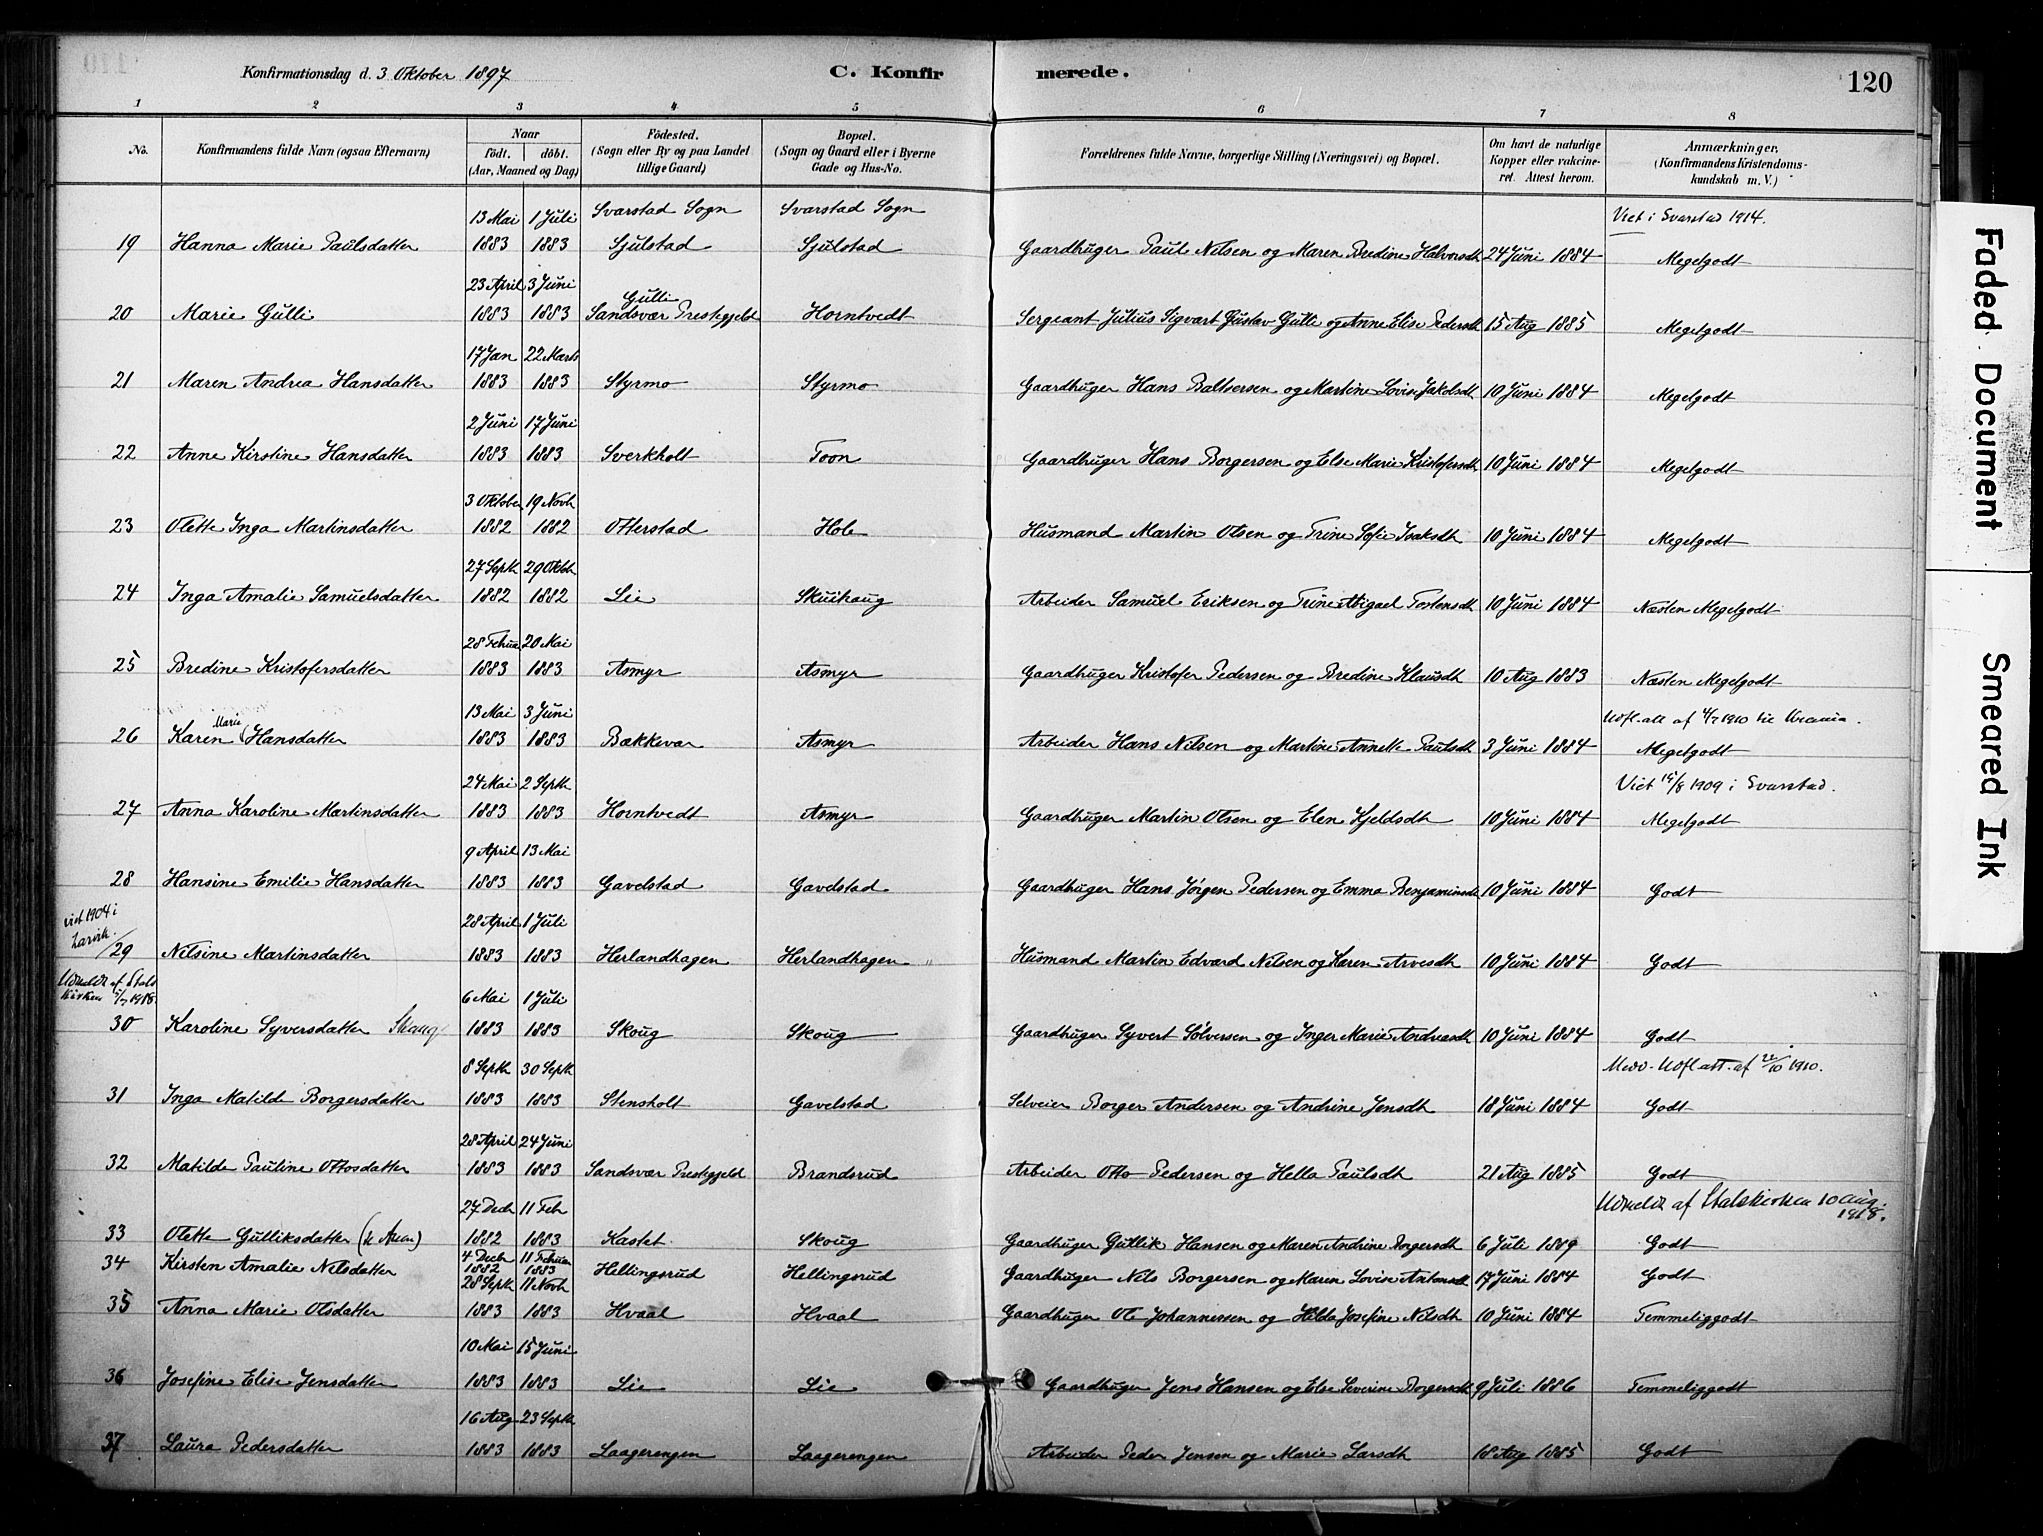 Konfirmationsdag d. 3 Oktober 1897 C. Konfirmerede. 120
1 2 3 4 5 6 7 8
No. Konfirmandens fulde Navn (ogsaa Efternavn) Naar födt. döbt. (Aar, Maaned og Dag) Födested. (Sogn eller By og paa Landet tillige Gaard) Bopæl. (Sogn og Gaard eller i Byerne Gade og Hus-No. Forældrenes fulde Navne, borgerlige Stilling (Næringsvei) og Bopæl. Om havt de naturlige Kopper eller vakcineret. Attest herom. Anmærkninger, (Konfirmandens Kristendomskundskab m. V.)
13 Mai 1 Juli Svarstad Sogn Svarstad Sogn Viet i Svarstad 1914.
19 Hanna Marie Paulsdatter 1883 1883 Sjulstad Sjulstad Gaardbruger Paul Nilsen og Maren Bredine Halvorsdt 24 Juni 1884 Megetgodt
23 April 3 Juni Gulli
20 Marie Gulli 1883 1883 Sandsvær Prestegjeld Horntvedt Sergeant Julius Sigvart Gustav Gulli og Anne Elise Pedersdt 15 Aug 1885 Megetgodt
17 Jan 22 Marts
21 Maren Andrea Hansdatter 1883 1883 Styrmo Styrmo Gaardbruger Hans Baltsersen og Martine Lovise Jakobsdt 10 Juni 1884 Megetgodt
2 Juni 17 Juni
22 Anne Kirstine Hansdatter 1883 1883 Sverkholt Toon Gaardbruger Hans Borgersen og Else Marie Kristofersdt 10 Juni 1884 Megetgodt
3 Oktober 19 Novb
23 Olette Inga Martinsdatter 1882 1882 Otterstad Hole Husmand Martin Olsen og Trine Sofie Isaksdt 10 Juni 1884 Megetgodt
27 Septb 29 Oktb
24 Inga Amalie Samuelsdatter 1882 1882 Lie Skuihaug Arbeider Samuel Eriksen og Trine Abigael Tostensdt 10 Juni 1884 Næsten Megetgodt
28 Februa 20 Mai
25 Bredine Kristofersdatter 1883 1883 Asmyr Asmyr Gaardbruger Kristofer Pedersen og Bredine Klausdt 10 Aug 1883 Næsten Megetgodt
13 Mai 3 Juni Udfl. att af 4/7 1910 til
26 Karen Marie Hansdatter 1883 1883 Bækkevar Asmyr Arbeider Hans Nilsen og Martine Annette Paulsdt 3 Juni 1884 Megetgodt
24 Mai 2 Septb Viet 15/8 1909 i Svarstad.
27 Anna Karoline Martinsdatter 1883 1883 Horntvedt Asmyr Gaardbruger Martin Olsen og Elen Kjeldsdt 10 Juni 1884 Megetgodt
9 April 13 Mai
28 Hansine Emilie Hansdatter 1883 1883 Gavelstad Gavelstad Gaardbruger Hans Jörgen Pedersen og Emma Benjaminsdt 10 Juni 1884 Godt
viet 1904 i Larvik. 28 April 1 Juli
29 Nilsine Martinsdatter 1883 1883 Herlandhagen Herlandhagen Husmand Martin Edvard Nilsen og Karen Arvesdt 10 Juni 1884 Godt
Udmeldt af Statskirken 5/7 1918. 6 Mai 1 Juli
30 Karoline Syversdatter Skaug 1883 1883 Skoug Skoug Gaardbruger Syvert Sölversen og Inger Marie Andreasdt 10 Juni 1884 Godt
8 Septb 30 Septb Medd. Udfl att. af 22/10 1910.
31 Inga Matilde Borgersdatter 1883 1883 Stensholt Gavelstad Selveier Borger Andersen og Andrine Jensdt 18 Juni 1884 Godt
28 April 24 Juni
32 Matilde Pauline Ottosdatter 1883 1883 Sandsvær Prestegjeld Brandsrud Arbeider Otto Pedersen og Hella Paulsdt 21 Aug 1885 Godt
27 Decb 11 Feb Udmeldt af Statskirken 10 aug. 1918.
33 Olette Gulliksdatter 1882 1883 Kastet Skoug Gaardbruger Gullik Hansen og Maren Andrine Borgersdt 6 Juli 1889 Godt
4 Decb 11 Februar
34 Kirsten Amalie Nilsdatter 1882 1883 Hellingsrud Hellingsrud Gaardbruger Nils Borgersen og Maren Lovise Antonsdt 17 Juni 1884 Godt
28 Septb 11 Novb
35 Anna Marie Olsdatter 1883 1883 Hvaal Hvaal Gaardbruger Ole Johannessen og Hilda Josefine Nilsdt 10 Juni 1884 Temmeliggodt
10 Mai 15 Juni
36 Josefine Elise Jensdatter 1883 1883 Lie Lie Gaardbruger Jens Hansen og Else Severine Borgersdt 9 Juli 1886 Temmeliggodt
16 Aug 23 Septb
37 Laura Pedersdatter 1883 1883 Laagerengen Laagerengen Arbeider Peder Jensen og Marie Larsdt 18 Aug 1885 Godt
Faded Document
Smeared Ink